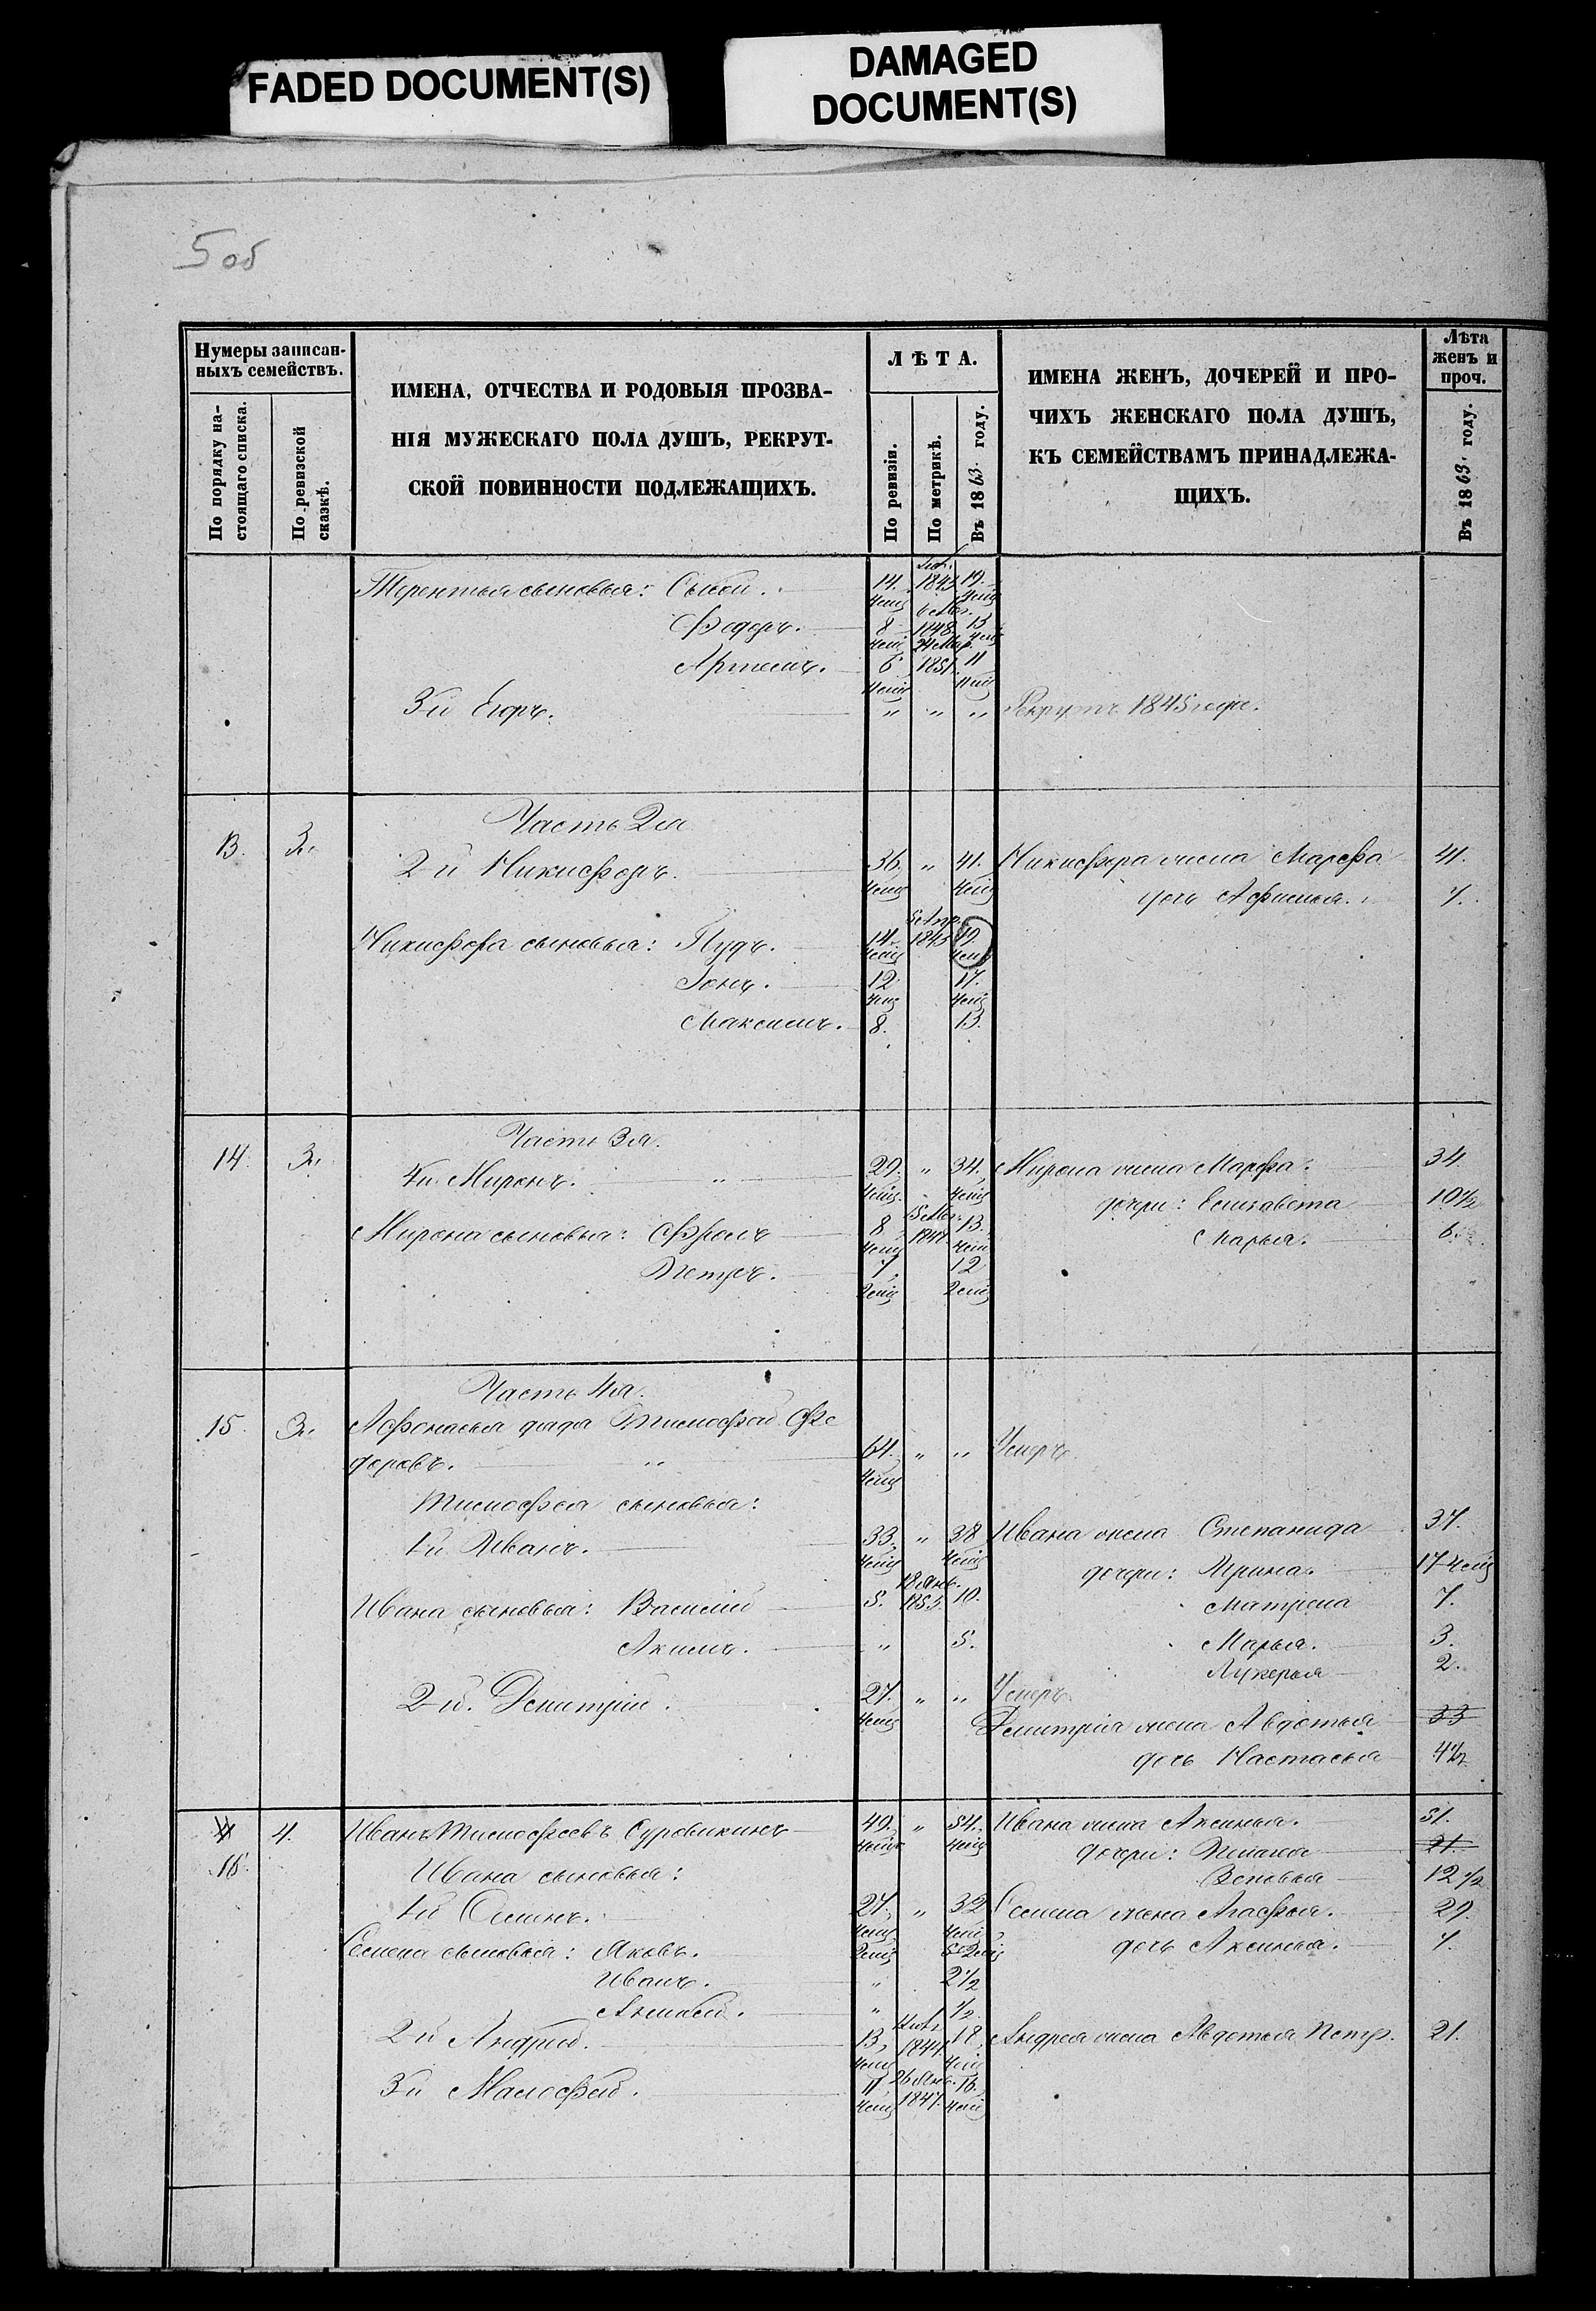 FADED DOCUMENT(S)
DAMAGED
DOCUMENT(S)
5 об
Нумеры записан-
ныхъ семействъ.
По порядку на-
стоящаго списка.
По ревизской
сказкѣ.
ИМЕНА, ОТЧЕСТВА И РОДОВЫЯ ПРОЗВА-
НІЯ МУЖЕСКАГО ПОЛА ДУШЪ, РЕКРУТ-
СКОЙ ПОВИННОСТИ ПОДЛЕЖАЩИХЪ.
ЛѢТА.
По ревизіи.
По метрикѣ.
Въ 1863 году.
ИМЕНА ЖЕНЪ, ДОЧЕРЕЙ И ПРО-
ЧИХЪ ЖЕНСКАГО ПОЛА ДУШЪ,
КЪ СЕМЕЙСТВАМЪ ПРИНАДЛЕЖА-
ЩИХЪ.
Лѣта
женъ и
проч.
Въ 1863 году.
Терентья сыновья: 14. 1843 19.
Федоръ. 8 1848 13
24 Мар.
Артемъ. 6 1851 11
3й Егоръ. " " " Рекрутъ 1845 года.
Часть 2я
13 3. 2й Никифоръ. 36. " 41. Никифора жена Марфа 41.
дочь Афимья. 7.
5 Апр.
Никифора сыновья: Пудъ. 14. 1843 19.
Іонъ. 12 17.
Максимъ. 8. 13.
Часть 3я.
14. 3. 4й Миронъ. " 29. " 34. Мирона жена Марфа. 34
дочери: Елизавета 10½
Мирона сыновья: Фролъ 8 13. Марья. 6.
Петръ. 7. 12
Часть 4я.
15. 3. Афонасья дядя Тимофей Фе
доровъ. " 64. " " Умеръ
Тимофея сыновья:
1й Иванъ. 33. " 38 Ивана жена Степанида 37.
дочери: Ирина. 17
18 Янв.
Ивана сыновья: Василій 5. 10. Матрена 7.
Акимъ. " 5. Марья. 3.
Лукерья 2.
2й. Дмитрій. 27. " " Умеръ
Дмитрія жена Авдотья 33
дочь Настасья 4½
4. Иванъ Тимофеевъ Суровикинъ 49. " 54. Ивана жена Аксинья. 51.
16. Ивана сыновья: дочери: Пелагея 21.
Зеновья 12½
1й Семенъ. 27. " 32 Семена жена Агафья. 29.
Семена сыновья: Яковъ. дочь Аксинья. 7.
Иванъ. " 2½
Алексей. " ½
2й Андрей. 13. 1844. 18. Андрея жена Авдотья Петр. 21.
26 Янв.
3й Малофей. 11 1847. 16.